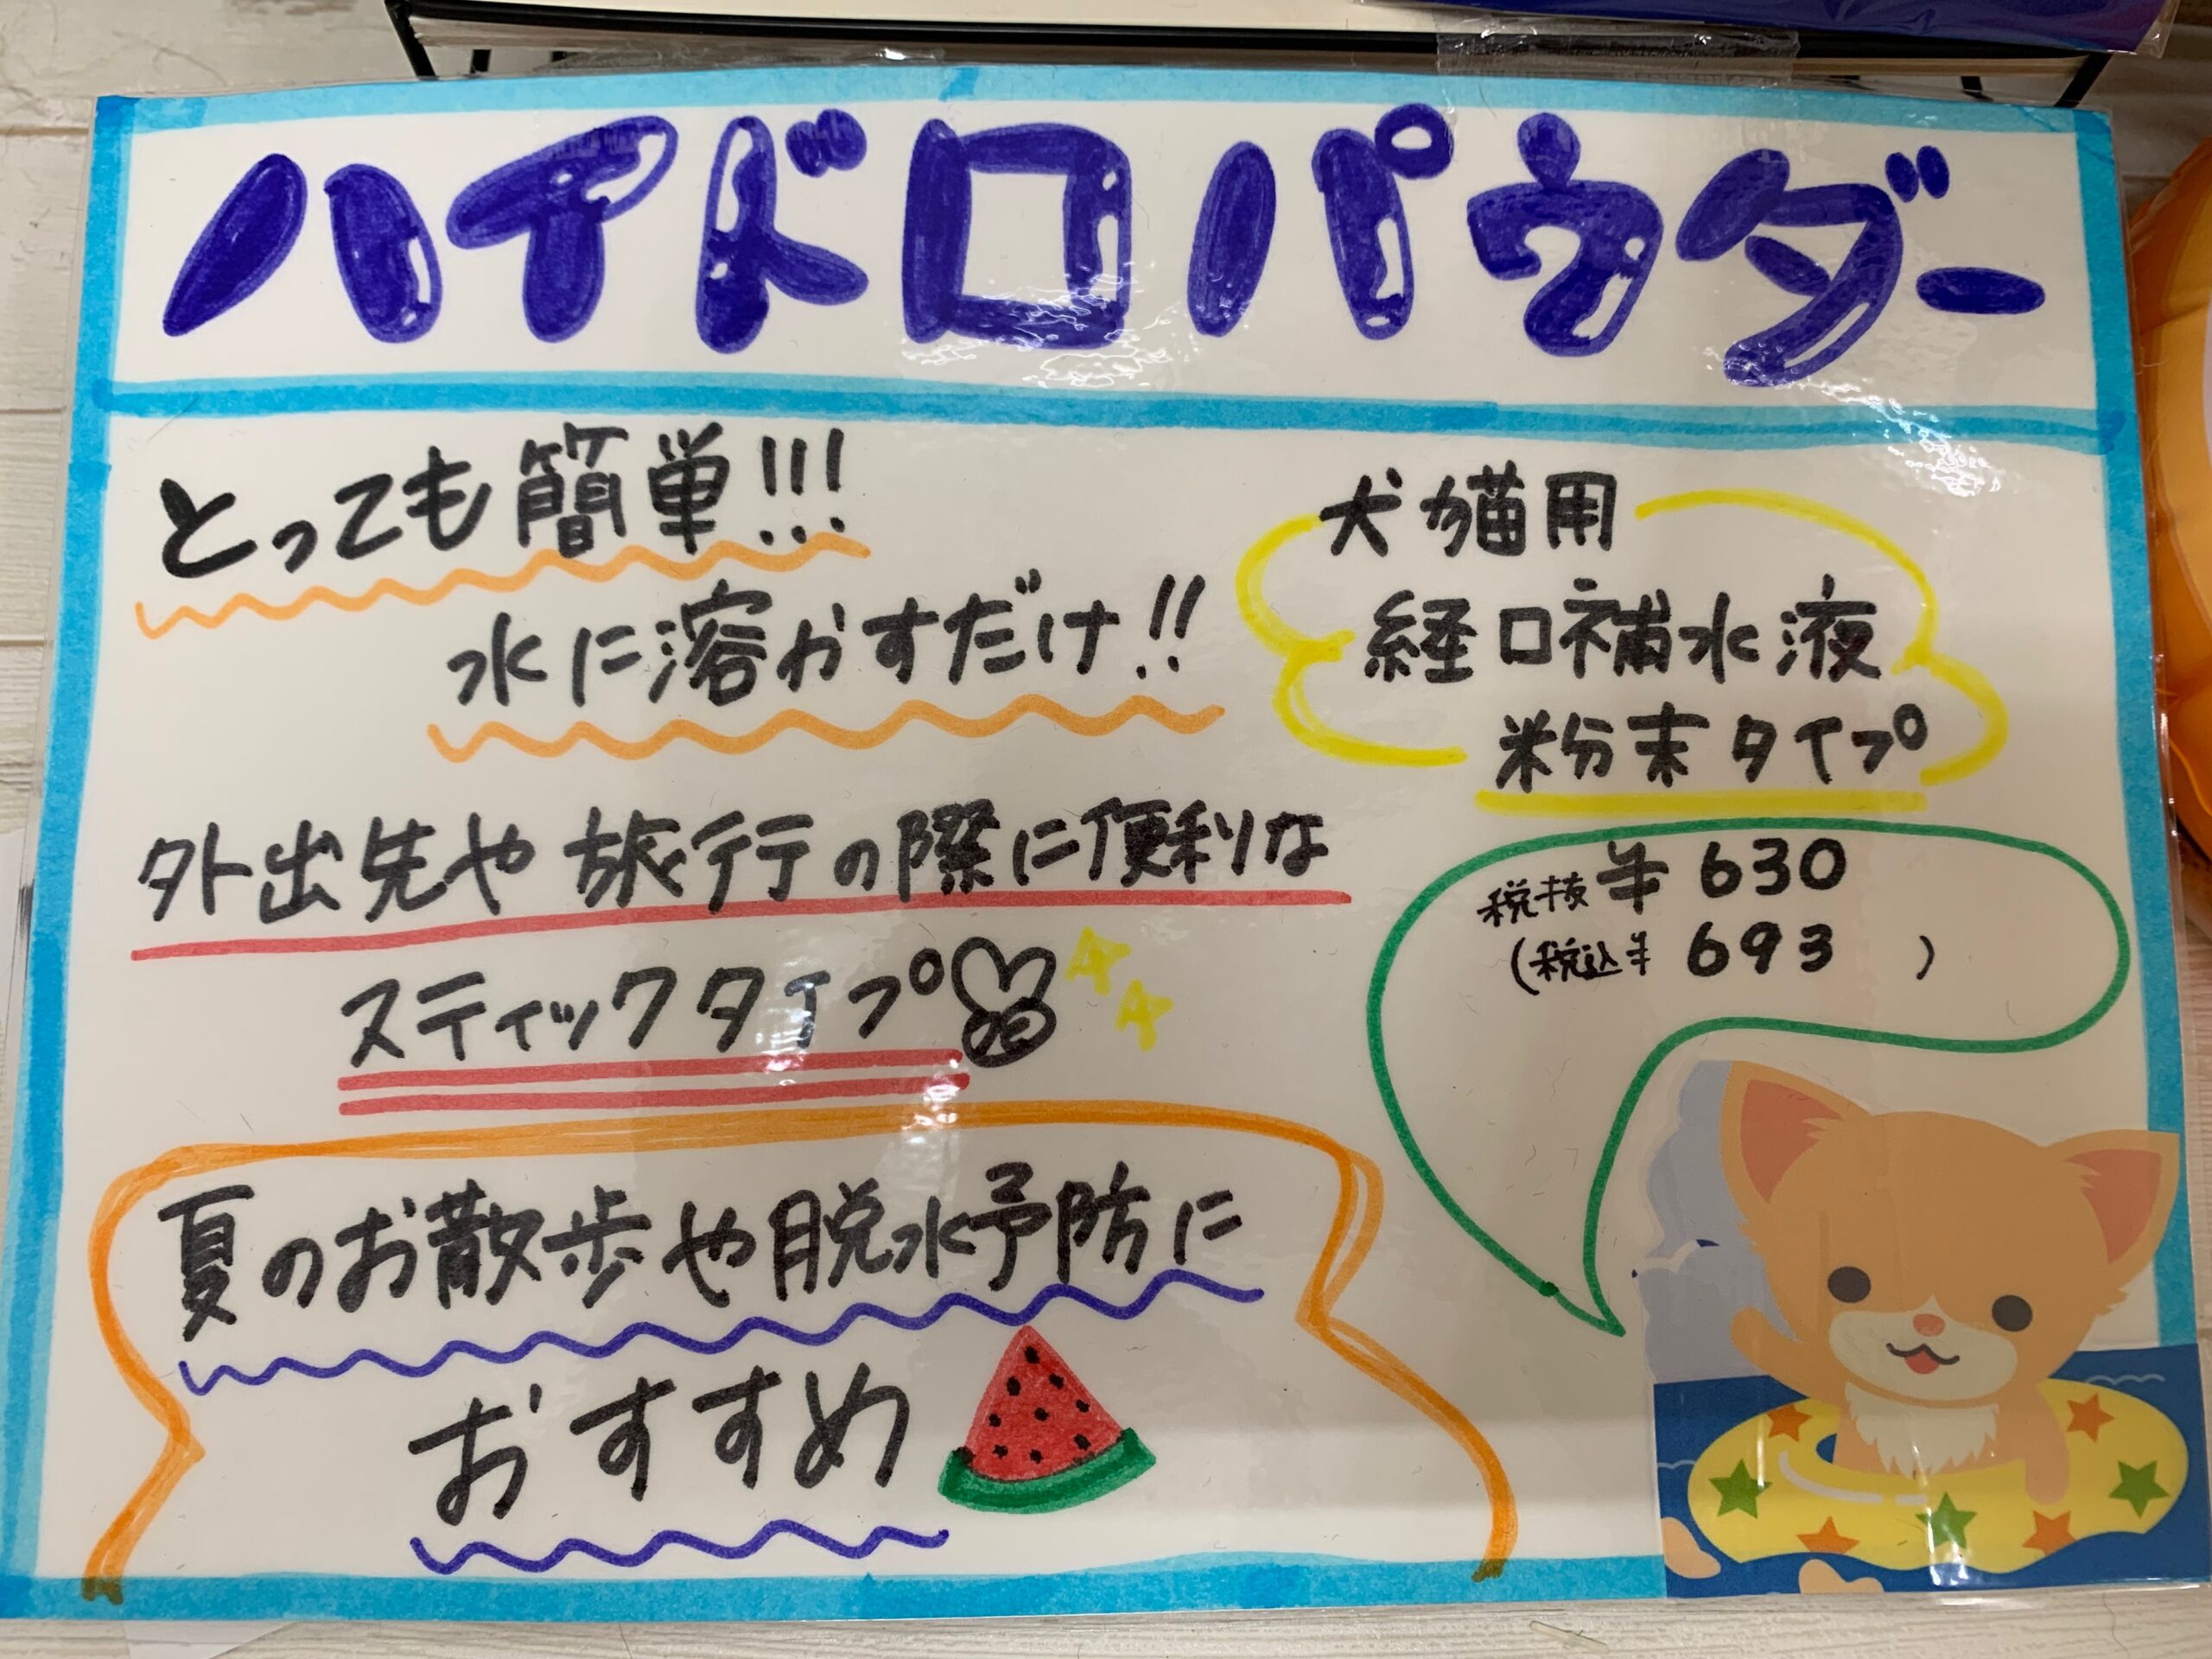 ハイドロパウダー
とっても簡単!!!
水に溶かすだけ!!
犬猫用
経口補水液
粉末タイプ
外出先や旅行の際に便利な
スティックタイプ
税抜¥630
(税込¥693 )
夏のお散歩や脱水予防に
おすすめ